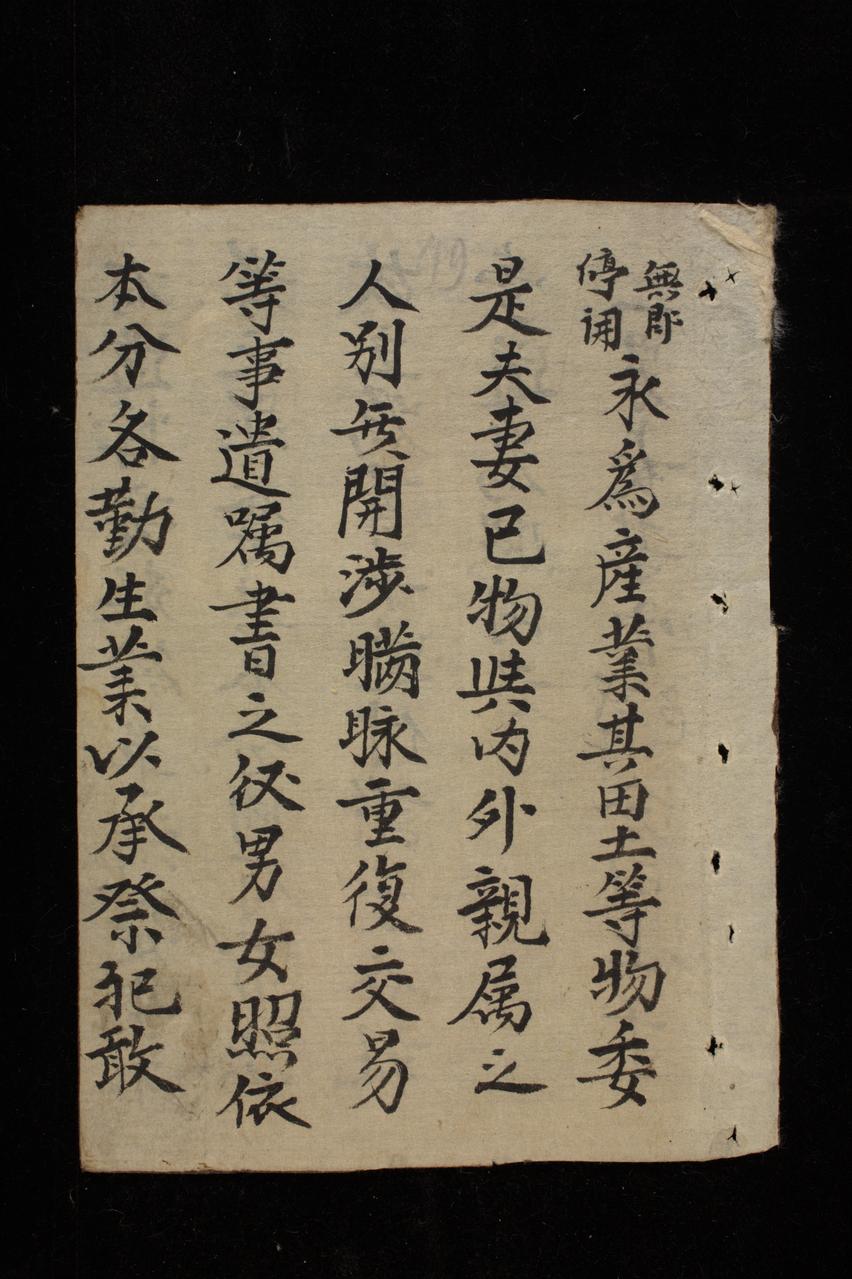 無即
停用
永爲産業其田土等物委
是夫妻已物與内外親属之
人別無開渉瞞昧重復交易
等事遺嘱書之後男女照依
本分各勤生業以承祭祀敢